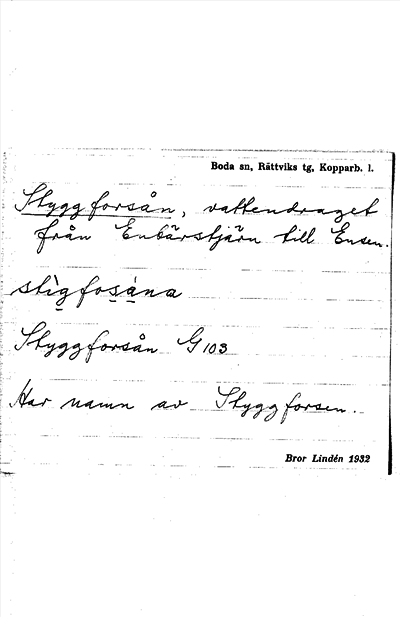 Boda sn, Rättviks tg, Kopparb. l.
Styggforsån, vattendraget
från Enbärstjärn till Ensen.
stìg̲fos̲ȧ́n̲a
Styggforsån G 103
Har namn av Styggforsen.
Bror Lindén 1932